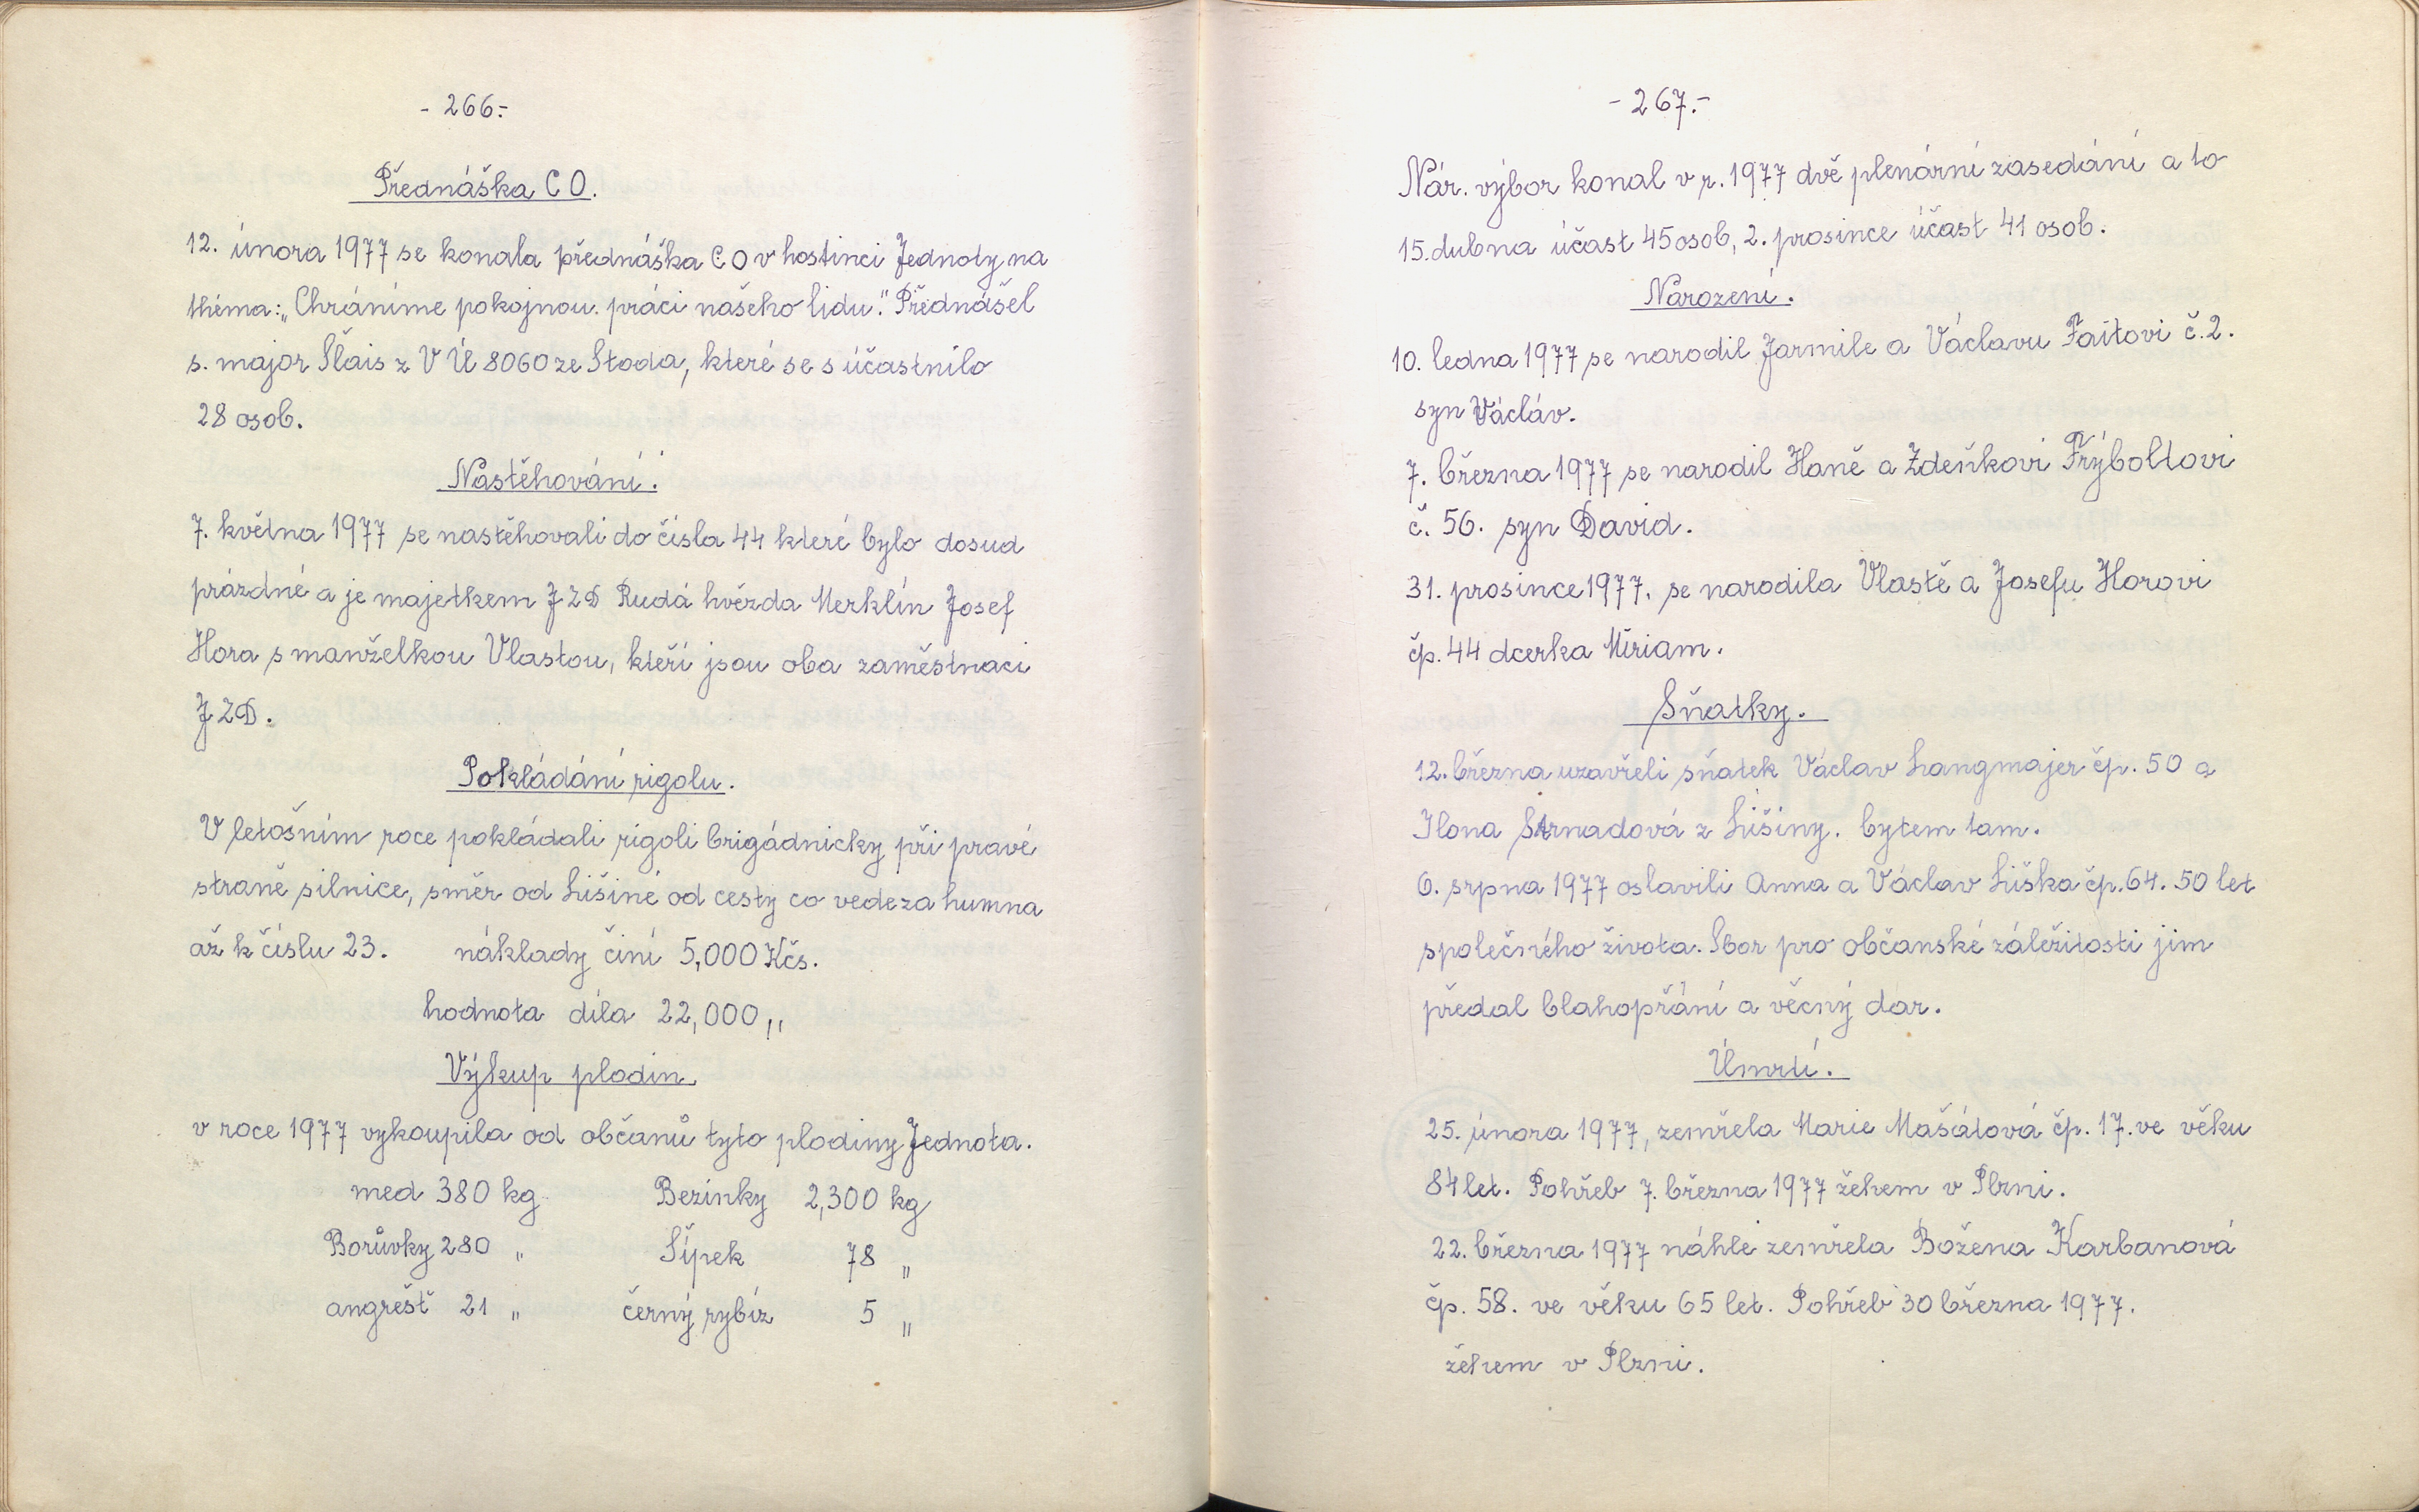 - 266.-
Přednáška C O.
12. února 1977 se konala přednáška C O v hostinci Jednoty na
théma: „Chráníme pokojnou práci našeho lidu." Přednášel
s. major Šlais z V Ú 8060 ze Stoda, které se súčastnilo
28 osob.
Nastěhování.
7. května 1977 se nastěhovali do čísla 44 které bylo dosud
prázdné a je majetkem J Z D Rudá hvězda Merklín Josef
Hora s manželkou Vlastou, kteří jsou oba zaměstnaci
J Z D.
Pokládání rigolu.
V letošním roce pokládali rigoli brigádnicky při pravé
straně silnice, směr od Lišiné od cesty co vede za humna
až k číslu 23. náklady činí 5,000 Kčs.
hodnota díla 22,000 „
Výkup plodin.
v roce 1977 vykoupila od občanů tyto plodiny Jednota.
med 380 kg Bezinky 2,300 kg
Borůvky 280 „ Šípek 78 „
angrešt 21 „ černý rybíz 5 „
- 267.-
Nár. výbor konal v r. 1977 dvě plenární zasedání a to
15. dubna účast 45 osob, 2. prosince účast 41 osob.
Narození.
10. ledna 1977 se narodil Jarmile a Václavu Faitovi č. 2.
syn Václáv.
7. března 1977 se narodil Haně a Zdeňkovi Frýboltovi
č. 56. syn David.
31. prosince 1977, se narodila Vlastě a Josefu Horovi
čp. 44 dcerka Miriam.
Sňatky.
12. března uzavřeli sňatek Václav Langmajer čp. 50 a
Ilona Strnadová z Lišiny. bytem tam.
6. srpna 1977 oslavili Anna a Václav Liška čp. 64. 50 let
společného života. Sbor pro občanské záležitosti jim
předal blahopřání a věcný dar.
Úmrtí.
25. února 1977, zemřela Marie Mašátová čp. 17. ve věku
84 let. Pohřeb 7. března 1977 žehem v Plzni.
22. března 1977 náhle zemřela Božena Karbanová
čp. 58. ve věku 65 let. Pohřeb 30 března 1977.
žehem v Plzni.